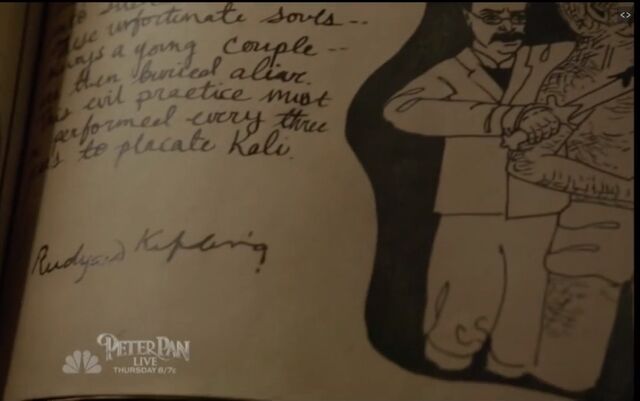 unfortunate souls--
a young couple--
then buried alive.
evil practice must
performed every three
to placate Kali.
Rudyard Kipling
PETER PAN
LIVE
THURSDAY 8/7c